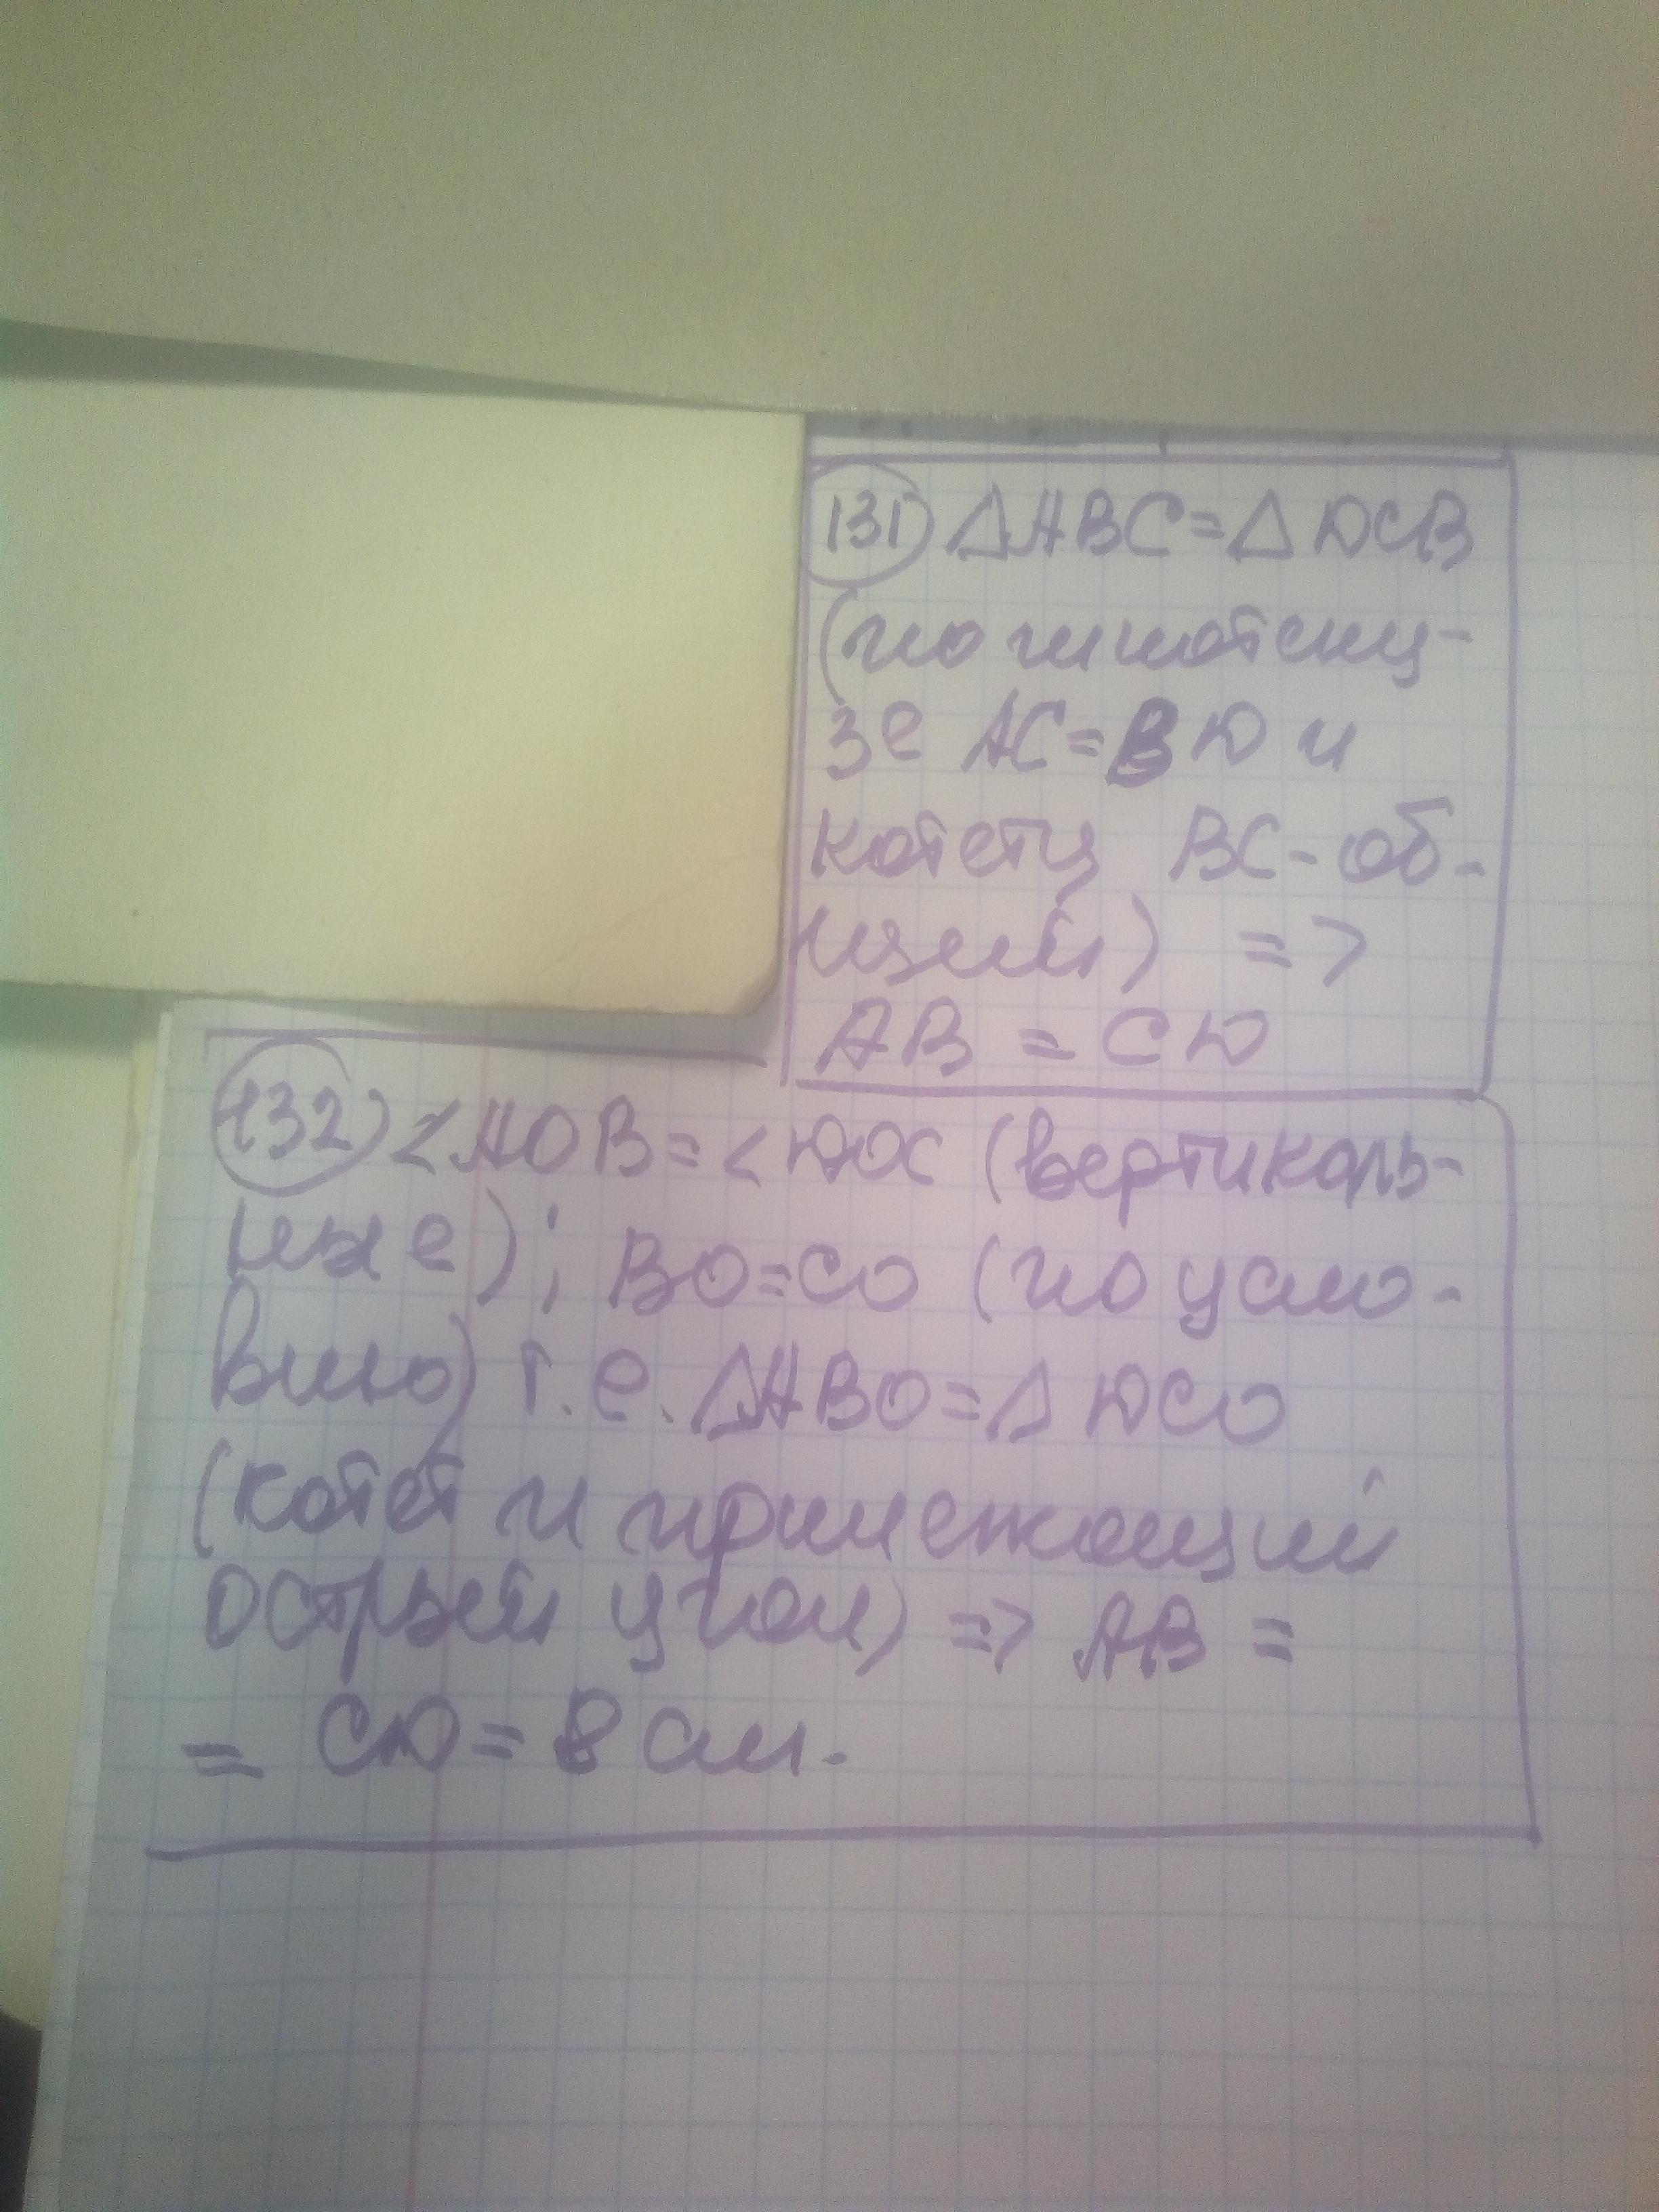 131) △ABC=△DCB
(по гипотену-
зе AC=BD и
катету BC-об-
щий) =>
AB = CD
132) <AOB=<DOC (вертикаль-
ные); BO=CO (по усло-
вию) т.е. △ABO=△DCO
(катет и прилежащий
острый угол) => AB =
= CD=8см.